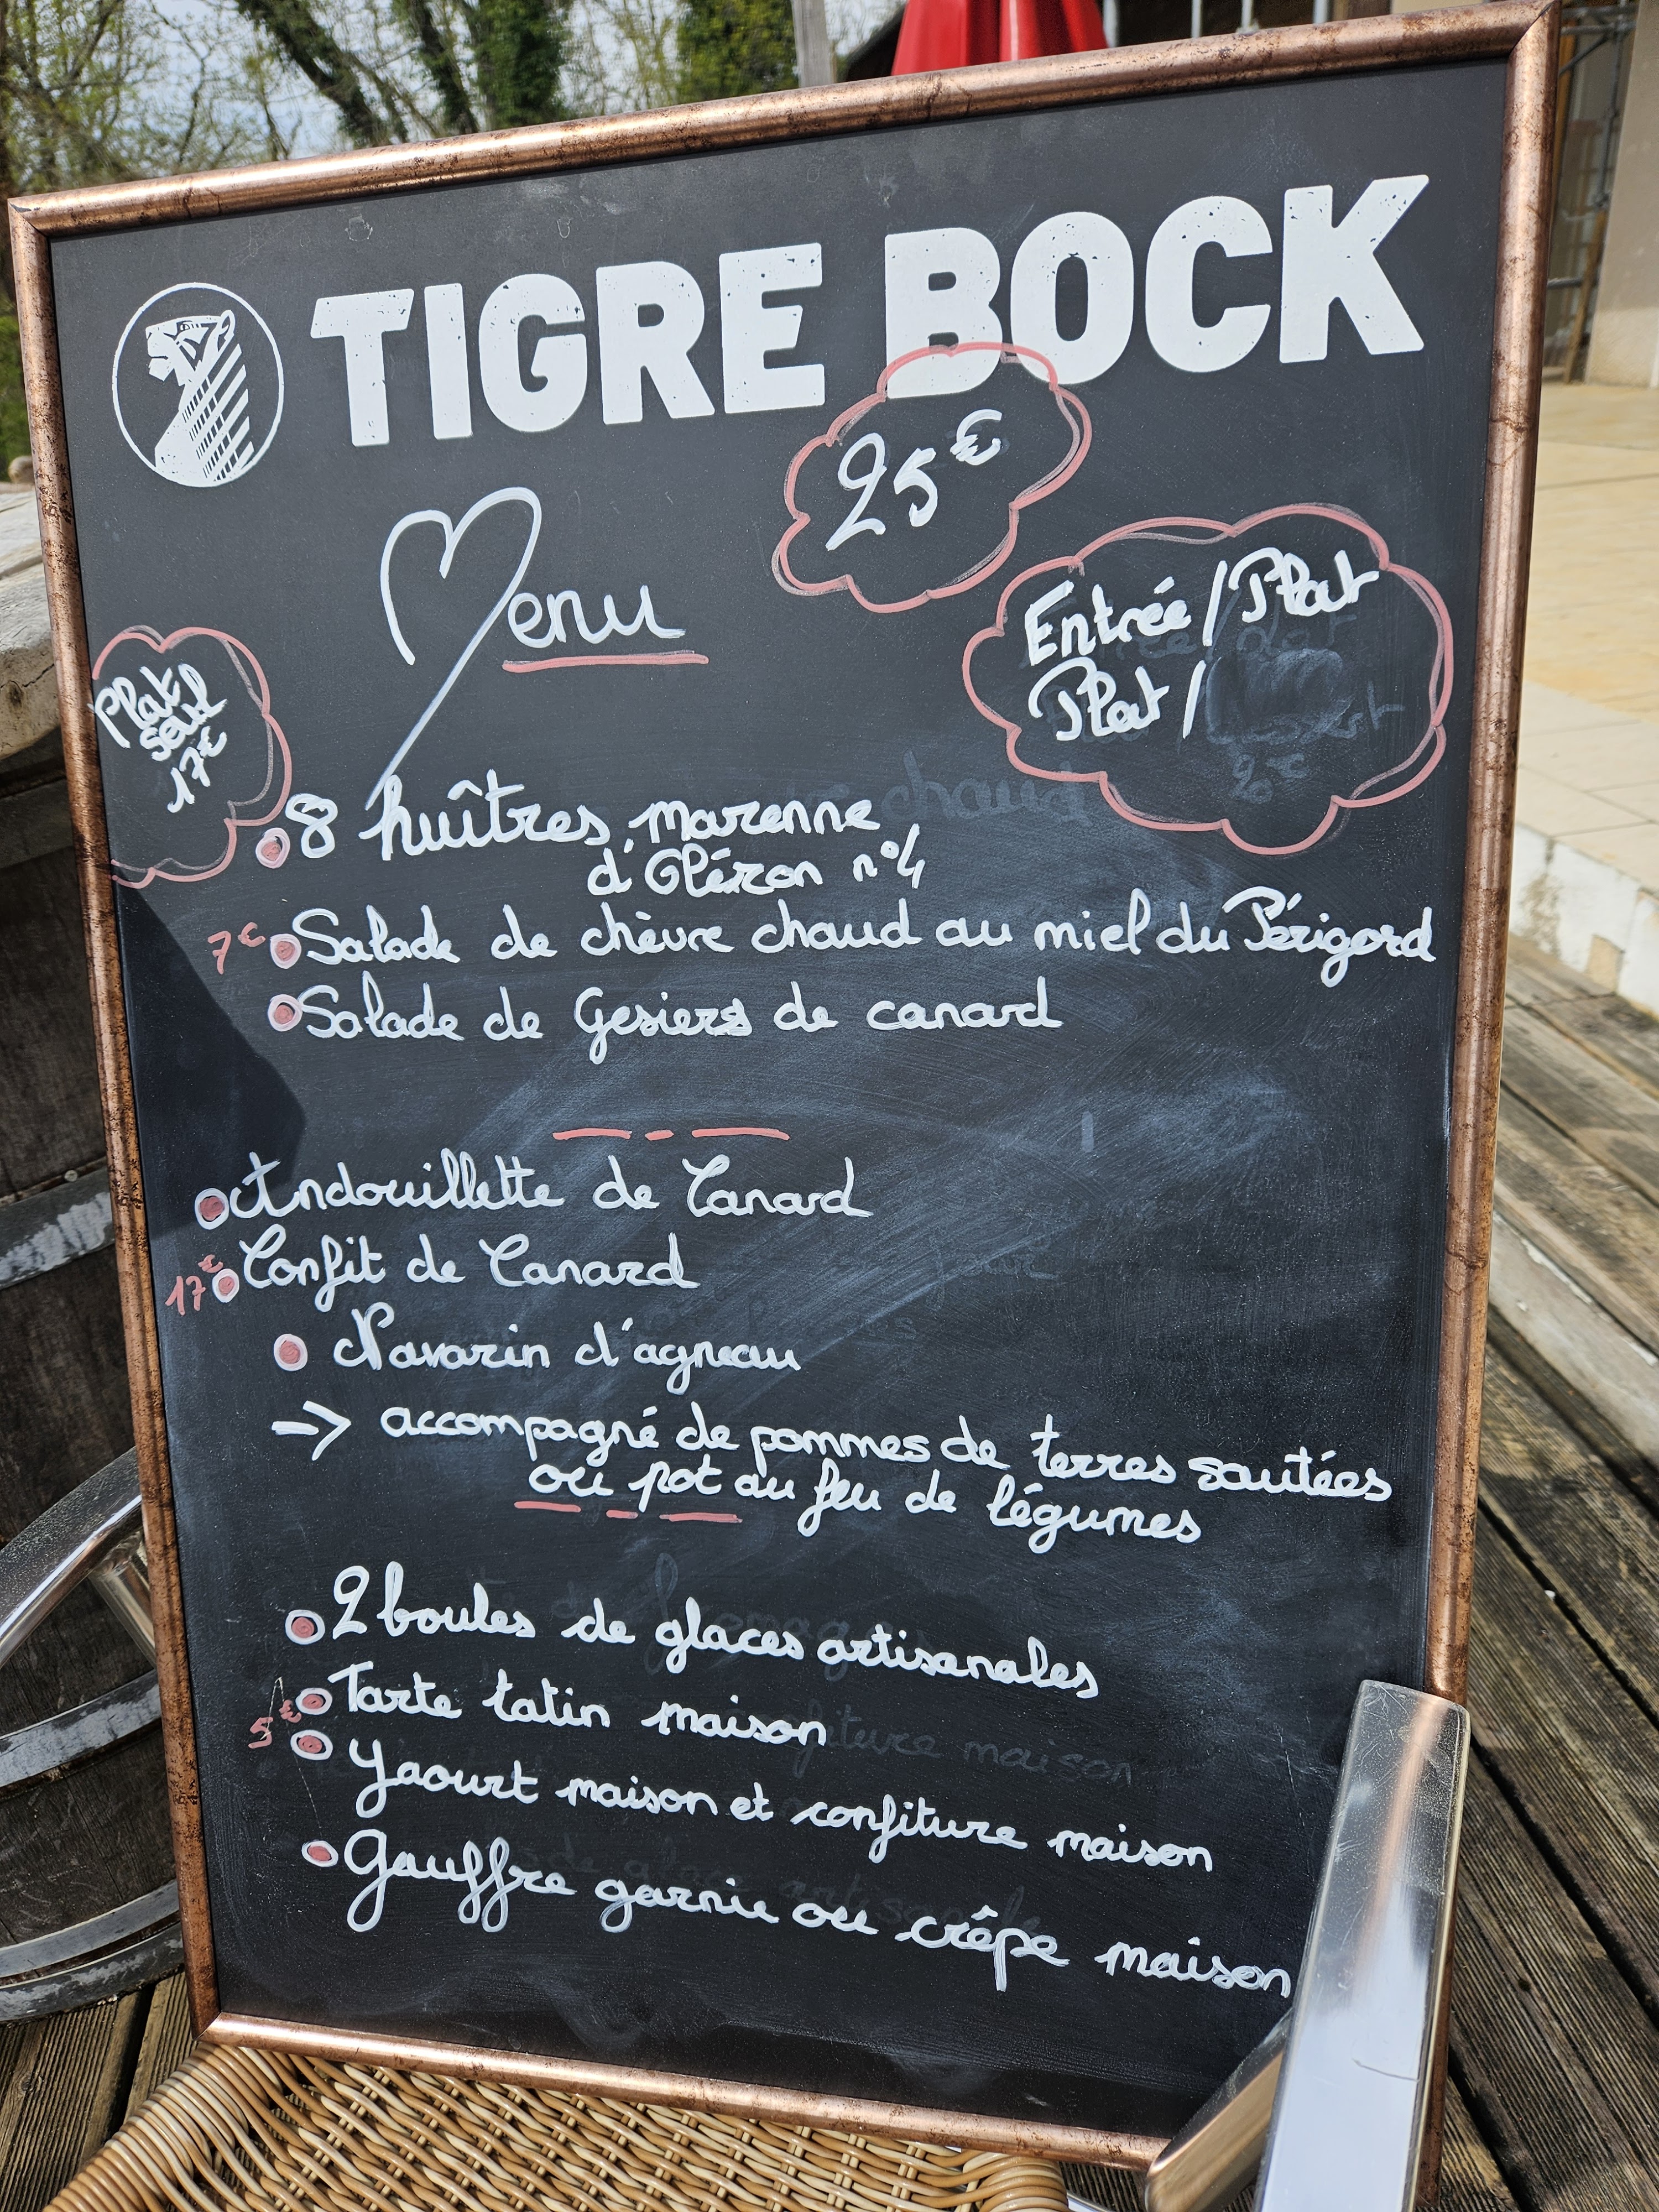 TIGRE BOCK
25€
Menu
Entrée/Plat
Plat/
20€
Plat
seul
17€
8 huîtres marenne
d'Oléron n°4
7€ Salade de chèvre chaud au miel du Périgord
Salade de Gesiers de canard
Andouillette de Canard
17€ Confit de Canard
Navarin d'agneau
→ accompagné de pommes de terres sautées
ou pot au feu de légumes
2 boules de glaces artisanales
5€ Tarte tatin maison
Yaourt maison et confiture maison
Gauffre garnie ou crêpe maison